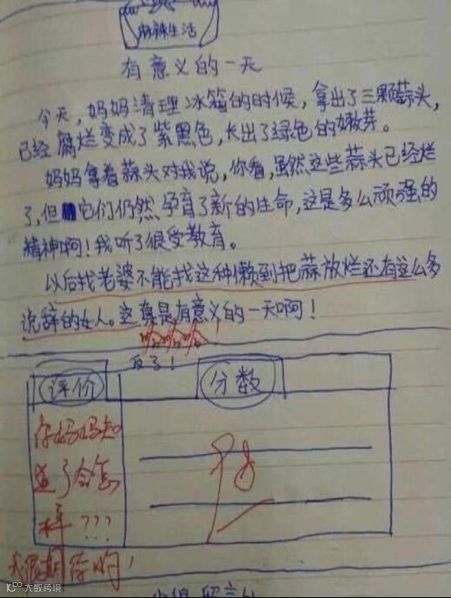 麻辣生活
有意义的一天
今天,妈妈清理冰箱的时候,拿出了三颗蒜头,
已经腐烂变成了紫黑色,长出了绿色的嫩芽。
妈妈拿着蒜头对我说,你看,虽然这些蒜头已经烂
了,但它们仍然孕育了新的生命,这是多么顽强的
精神啊!我听了很受教育。
以后找老婆不能找这种懒到把蒜放烂还有这么多
说辞的女人。这真是有意义的一天啊!
哈哈哈
反了!
评价
分数
你妈妈知
道了会怎
样???
98
大数跨境